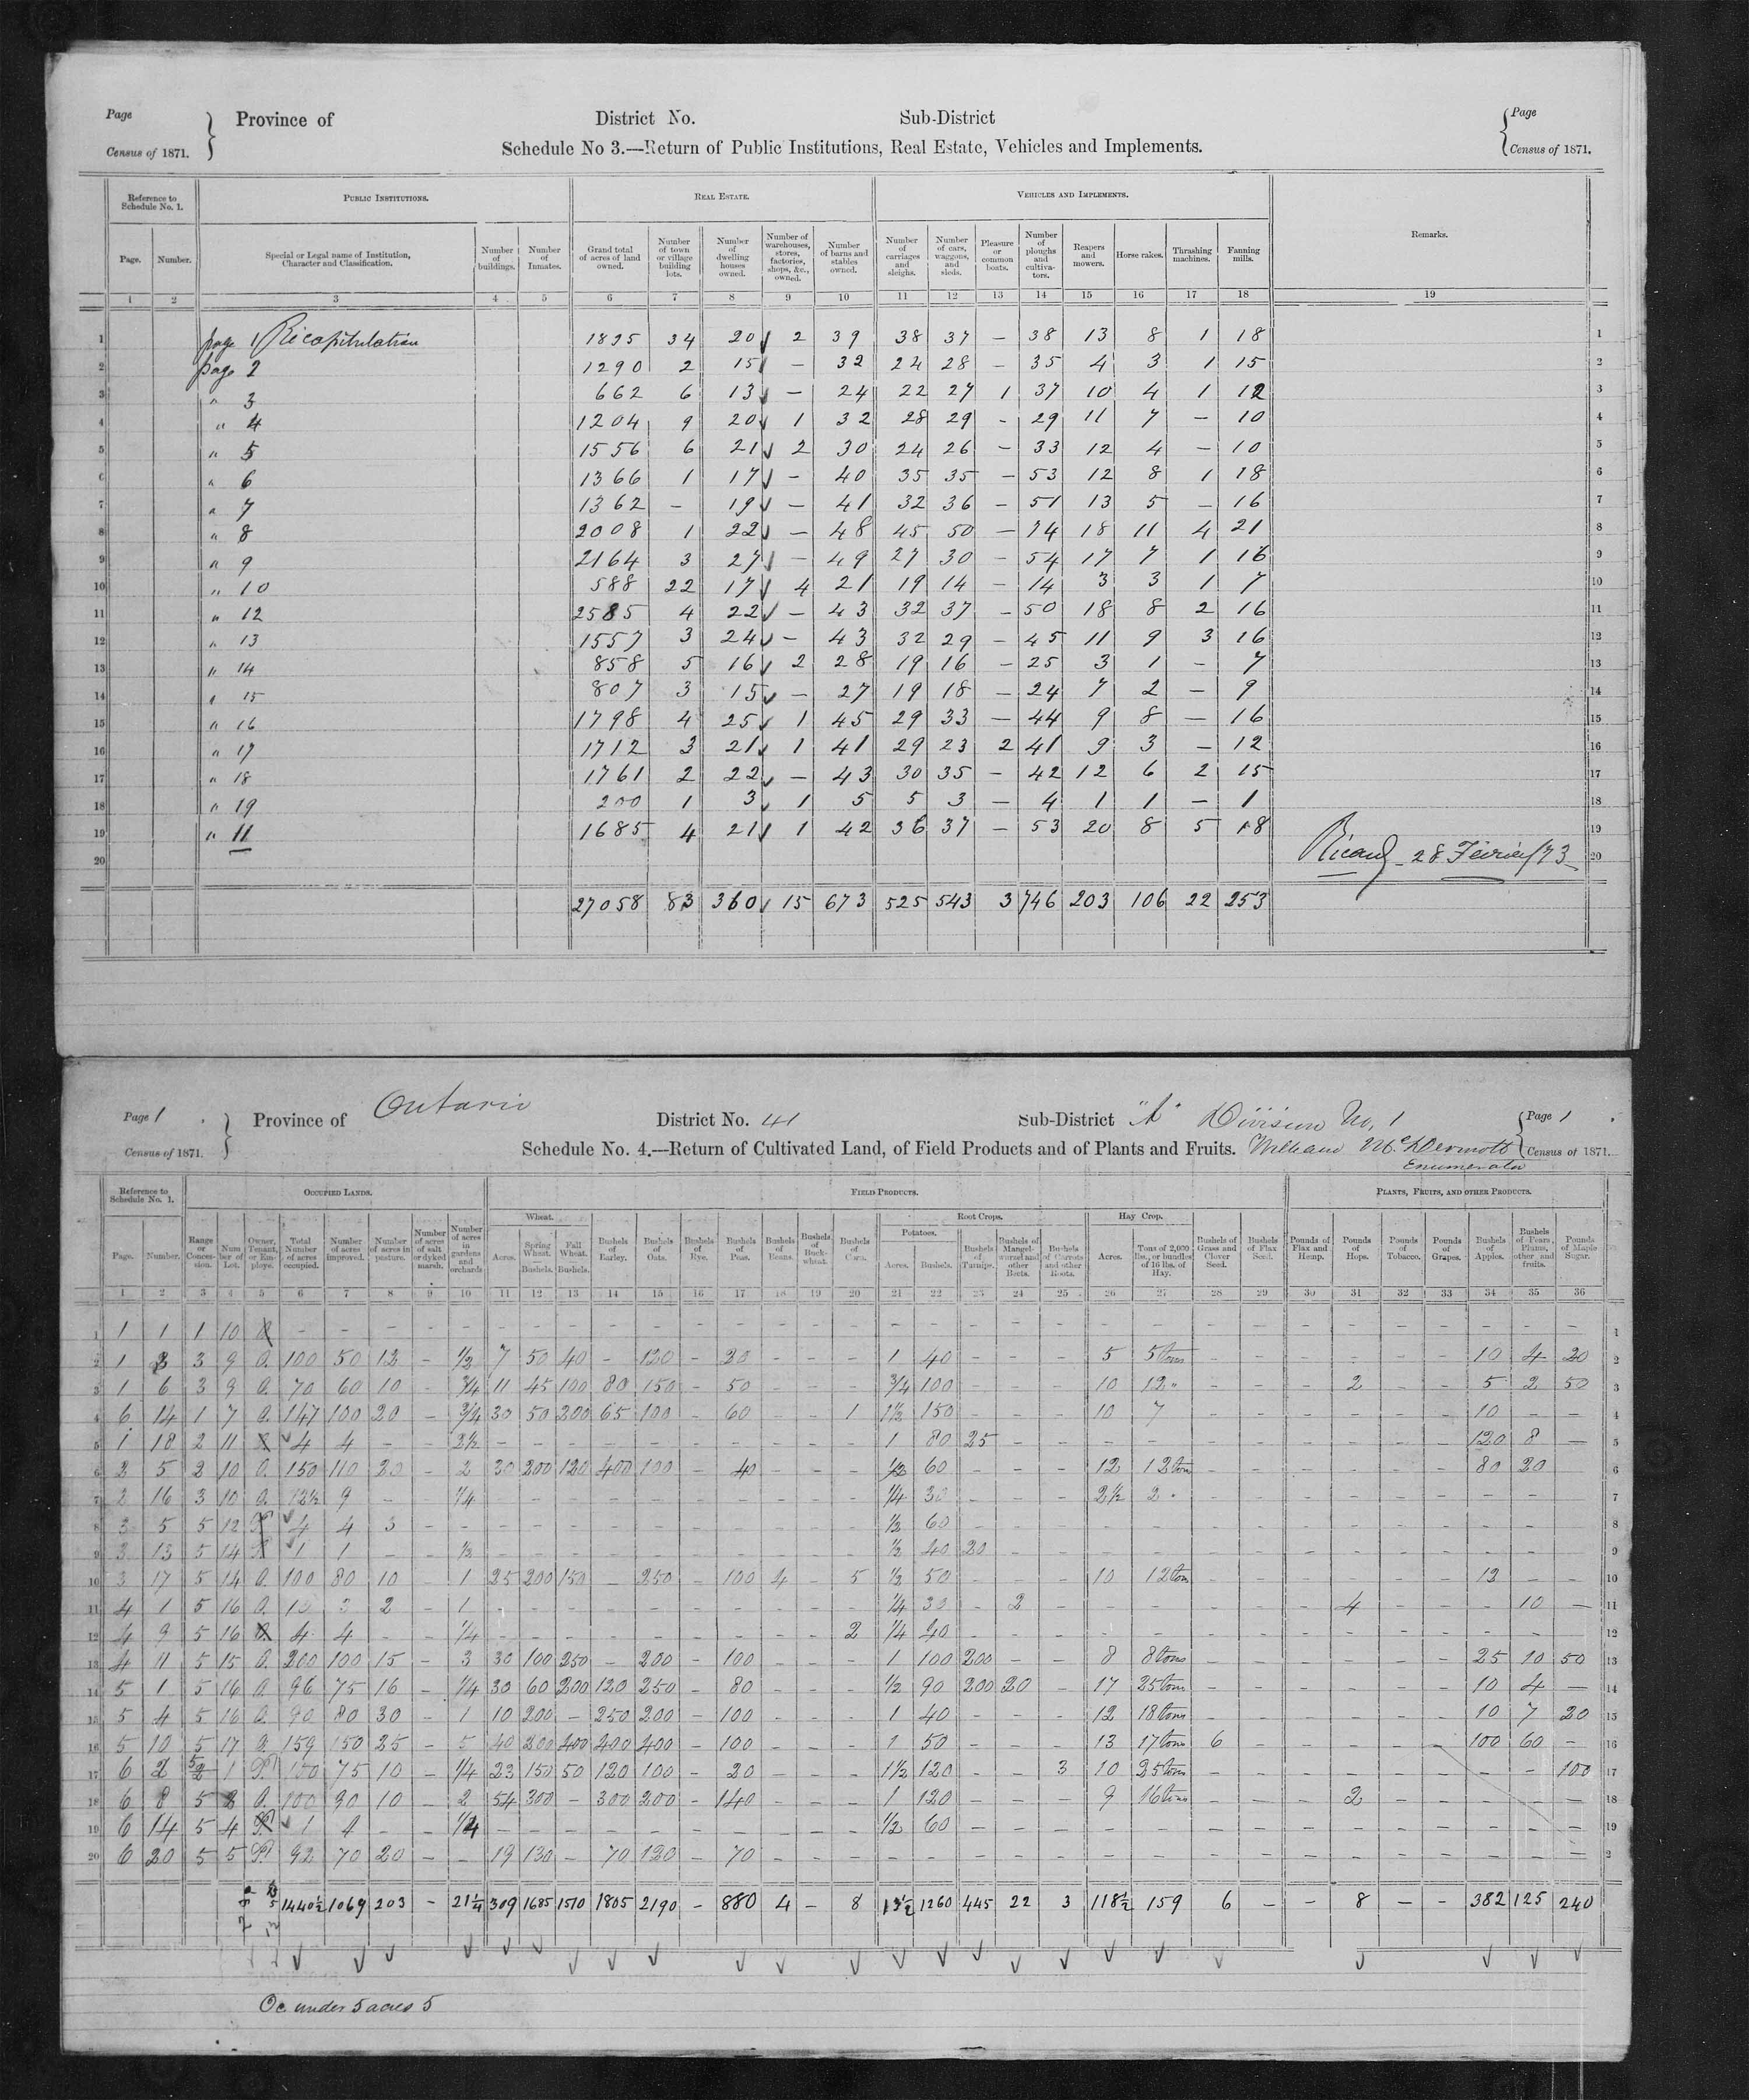 Page
Census of 1871.
Province of
District No.
Sub-District
Page
Census of 1871.
Schedule No 3.—Return of Public Institutions, Real Estate, Vehicles and Implements.
Reference to Schedule No. 1.
Public Institutions.
Real Estate.
Vehicles and Implements.
Remarks.
Page.
Number.
Special or Legal name of Institution, Character and Classification.
Number of buildings.
Number of Inmates.
Grand total of acres of land owned.
Number of town or village building lots.
Number of dwelling houses owned.
Number of warehouses, stores, factories, shops, &c., owned.
Number of barns and stables owned.
Number of carriages and sleighs.
Number of cars, waggons, and sleds.
Pleasure or common boats.
Number of ploughs and cultivators.
Reapers and mowers.
Horse rakes.
Thrashing machines.
Fanning mills.
1 2 3 4 5 6 7 8 9 10 11 12 13 14 15 16 17 18 19
1 page 1 Ricapitulation 1895 34 20 2 39 38 37 – 38 13 8 1 18 1
2 page 2 1290 2 15 – 32 24 28 – 35 4 3 1 15 2
3 " 3 662 6 13 – 24 22 27 1 37 10 4 1 12 3
4 " 4 1204 9 20 1 32 28 29 - 29 11 7 – 10 4
5 " 5 1556 6 21 2 30 24 26 – 33 12 4 – 10 5
6 " 6 1366 1 17 - 40 35 35 – 53 12 8 1 18 6
7 " 7 1362 - 19 – 41 32 36 – 51 13 5 – 16 7
8 " 8 2008 1 22 – 48 45 50 – 74 18 11 4 21 8
9 " 9 2164 3 27 - 49 27 30 – 54 17 7 1 16 9
10 " 10 588 22 17 4 21 19 14 – 14 3 3 1 7 10
11 " 12 2585 4 22 – 43 32 37 – 50 18 8 2 16 11
12 " 13 1557 3 24 – 43 32 29 – 45 11 9 3 16 12
13 " 14 858 5 16 2 28 19 16 – 25 3 1 – 7 13
14 " 15 807 3 15 – 27 19 18 – 24 7 2 – 9 14
15 " 16 1798 4 25 1 45 29 33 – 44 9 8 – 16 15
16 " 17 1712 3 21 1 41 29 23 2 41 9 3 – 12 16
17 " 18 1761 2 22 – 43 30 35 – 42 12 6 2 15 17
18 " 19 200 1 3 1 5 5 3 – 4 1 1 – 1 18
19 " 11 1685 4 21 1 42 36 37 – 53 20 8 5 18 19
20 Ricard - 28 Février/73 20
27058 83 360 15 673 525 543 3 746 203 106 22 253
Page 1
Census of 1871.
Province of Ontario
District No. 41
Sub-District "A" Division No. 1
Page 1
Census of 1871.
Schedule No. 4.—Return of Cultivated Land, of Field Products and of Plants and Fruits.
William McDermott
Enumerator
Reference to Schedule No. 1.
Occupied Lands.
Field Products.
Plants, Fruits, and other Products.
Wheat.
Root Crops.
Potatoes.
Hay Crop.
Page.
Number.
Range or Concession.
Number of Lot.
Owner, Tenant, or Employe.
Total Number of acres occupied.
Number of acres improved.
Number of acres in pasture.
Number of acres of salt or dyked marsh.
Number of acres in gardens and orchards
Acres.
Spring Wheat. — Bushels.
Fall Wheat. — Bushels.
Bushels of Barley.
Bushels of Oats.
Bushels of Rye.
Bushels of Peas.
Bushels of Beans.
Bushels of Buckwheat.
Bushels of Corn.
Acres.
Bushels.
Bushels of Turnips.
Bushels of Mangel-wurzel and other Beets.
Bushels of Carrots and other Roots.
Acres.
Tons of 2,000 lbs., or bundles of 16 lbs. of Hay.
Bushels of Grass and Clover Seed.
Bushels of Flax Seed.
Pounds of Flax and Hemp.
Pounds of Hops.
Pounds of Tobacco.
Pounds of Grapes.
Bushels of Apples.
Bushels of Pears, Plums, other and fruits.
Pounds of Maple Sugar.
1 2 3 4 5 6 7 8 9 10 11 12 13 14 15 16 17 18 19 20 21 22 23 24 25 26 27 28 29 30 31 32 33 34 35 36
1 1 1 1 10 – – – – – – – – – – – – – 1
2 1 3 3 9 O. 100 50 12 – 1/2 7 50 40 – 120 – 30 – – – 1 40 – – – 5 5 tons – – – – – – 10 4 20 2
3 1 6 3 9 O. 70 60 10 – 3/4 11 45 100 80 150 – 50 – – – 3/4 100 – – – 10 12 " – – – 2 – – 5 2 50 3
4 6 14 1 7 O. 147 100 20 – 3/4 30 50 200 65 100 – 60 – – 1 1 1/2 150 – – – 10 7 – – – – – – 10 – – 4
5 1 18 2 11 4 4 – – 2 1/2 – – – – – – – – – – 1 80 25 – – – – – – – – – – 120 8 — 5
6 2 5 2 10 O. 150 110 20 – 2 30 200 120 400 100 – 40 – – – 1/2 60 – – – 12 12 tons – – – – – – 80 20 6
7 2 16 3 10 O. 12 1/2 9 – 1/4 – – – – – – – – – – 1/4 30 – – – 2 1/2 2 " – – – – – – – – – 7
8 3 5 5 12 4 4 3 – – – – – – – – – – – – 1/2 60 – – – – – – – – – – – – – – 8
9 3 13 5 14 1 1 – – 1/2 – – – – – – – – – – 1/2 40 20 – – – – – – – – – – – – – 9
10 3 17 5 14 O. 100 80 10 – 1 25 200 150 – 250 – 100 4 – 5 1/2 50 – – – 10 12 tons – – – – – – 12 – – 10
11 4 1 5 16 O. 3 2 – 1 – – – – – – – – – – 1/4 30 – 2 – – – – – – 4 – – – 10 — 11
12 4 9 5 16 4 4 – – 1/4 – – – – – – – – – 2 1/4 40 – – – – – – – – – – – – – – 12
13 4 11 5 15 O. 200 100 15 – 3 30 100 250 – 200 – 100 – – – 1 100 200 – – 8 8 tons – – – – – – 25 10 50 13
14 5 1 5 16 O. 96 75 16 – 1/4 30 60 200 120 250 – 80 – – – 1/2 90 200 20 – 17 25 tons – – – – – – 10 4 — 14
15 5 4 5 16 O. 90 80 30 – 1 10 200 – 250 200 – 100 – – – 1 40 – – – 12 18 tons – – – – – – 10 7 20 15
16 5 10 5 17 O. 159 150 25 – 5 40 200 400 400 400 – 100 – – – 1 50 – – – 13 17 tons 6 – – – – – 100 60 – 16
17 6 2 5 1 T 100 75 10 – 1/4 23 150 50 120 100 – 20 – – – 1 1/2 120 – – 3 10 25 tons – – – – – – – – 100 17
18 6 8 5 2 O. 100 90 10 – 2 54 300 – 300 200 – 140 – – – 1 120 – – – 9 16 tons – – – 2 – – – – – 18
19 6 14 5 4 1 1 – – 1/4 – – – – – – – – – – 1/2 60 – – – – – – – – – – – – – – 19
20 6 20 5 5 T 92 70 20 – – 19 130 – 70 120 – 70 – – – – – – – – – – – – – – – – – – – 2
1440 1/2 1069 203 – 21 1/4 309 1685 1510 1805 2190 – 880 4 – 8 13 1/2 1260 445 22 3 118 1/2 159 6 – – 8 – – 382 125 240
Oc. under 5 acres 5